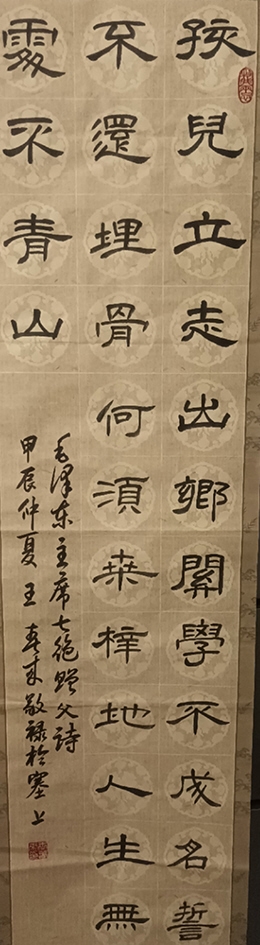 孩兒立志出鄉關學不成名誓
不還埋骨何須桑梓地人生無
處不青山
毛澤東主席七絕贈父詩
甲辰仲夏王春来敬録於塞上